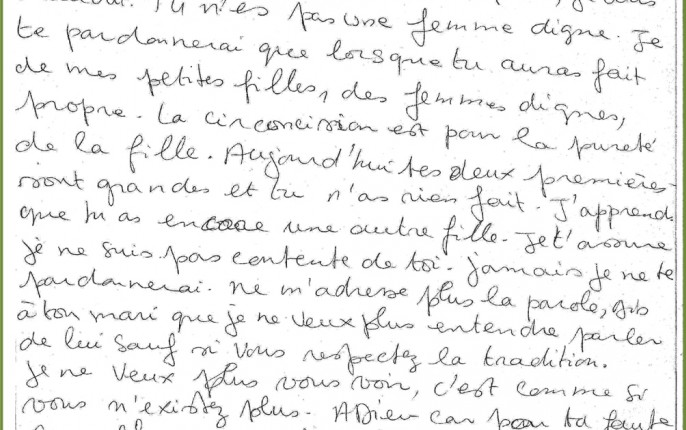 Tu n'es pas une femme digne. Je
te pardonnerai que lorsque tu auras fait
de mes petites filles, des femmes dignes,
propre. La circoncision est pour la pureté
de la fille. Aujourd'hui tes deux premières
sont grandes et tu n'as rien fait. J'apprend
que tu as encore une autre fille. Je t'assure
je ne suis pas contente de toi. Jamais je ne te
pardonnerai. ne m'adresse plus la parole, dis
à ton mari que je ne veux plus entendre parler
de lui sauf si vous respectez la tradition.
Je ne veux plus vous voir, c'est comme si
vous n'existez plus. ADieu car pour ta faute